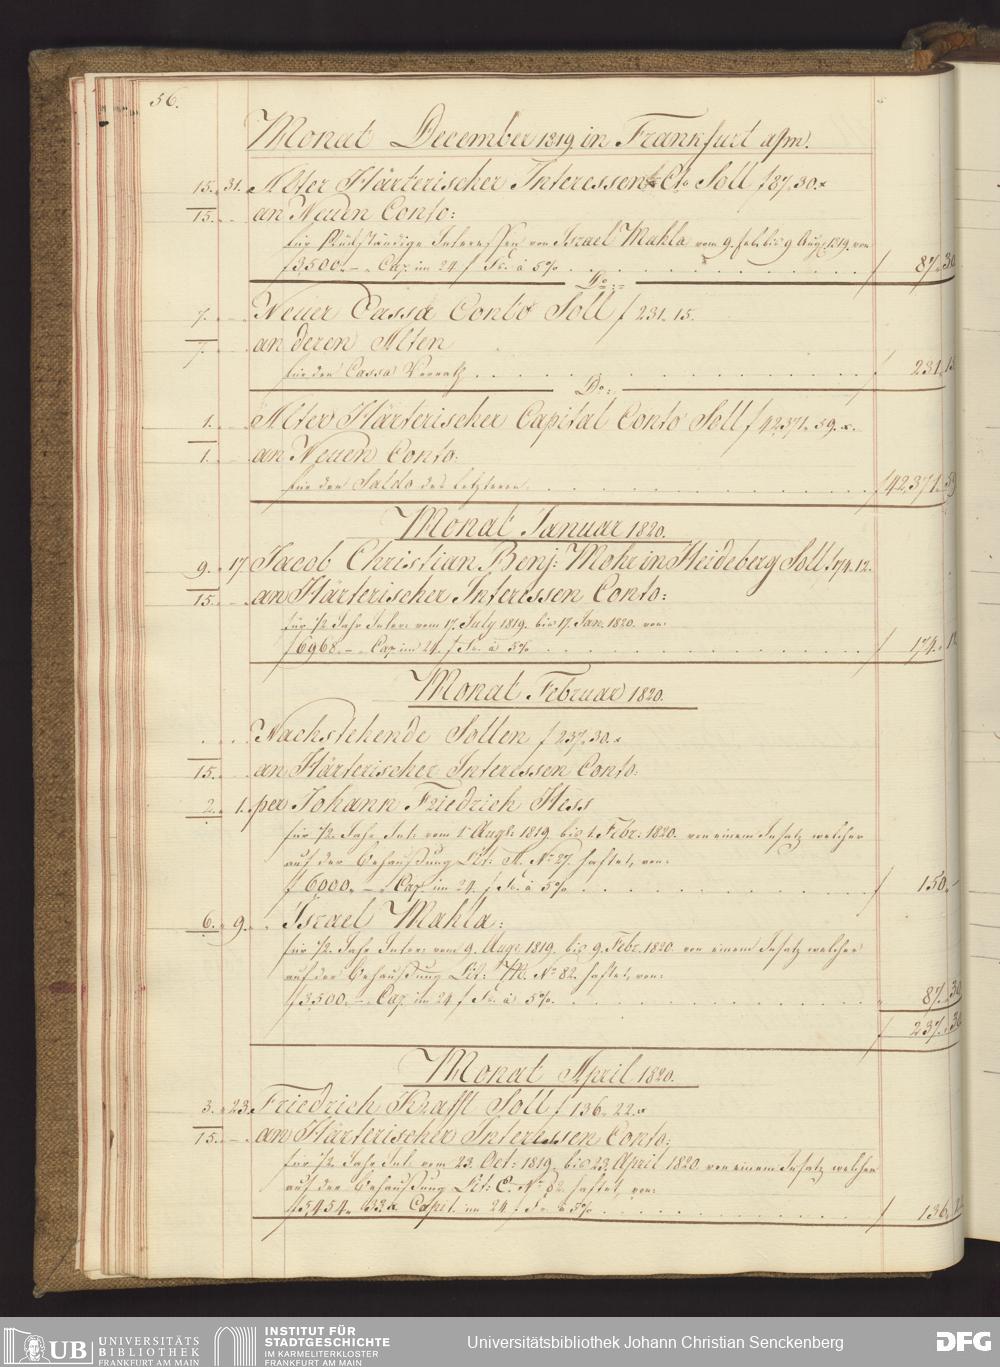 56.
Monat December 1819 in Frankfurt a/m.
15. 31. Alter Härterischer Interessen Cto Soll f 87.30.x
15. an Neuen Conto:
für Rückständige Interessen von Israel Mahla vom 9. Feb. bis 9 Aug. 1819. von
f 3,500.– Cap. im 24 f Fs. à 5% f 87. 30
Do:
7. Neuer Cassa Conto Soll f 231. 15.
7. an deren Alten
für den Cassa Vorrath f 231. 15
Do:
1. Alter Härterischer Capital Conto Soll f 42,371. 59. x.
1. an Neuen Conto:
für den Saldo des Letzteren f 42,371. 59
Monat Januar 1820.
9. 17. Jacob Christian Benj: Mohr in Heideberg Soll f 174.12.
15. an Härterischer Interessen Conto:
für 1/2 Jahr Inter: vom 17. July 1819. bis 17. Jan. 1820. von:
f 6968.– Cap im 24. f Fs. à 5% f 174. 12
Monat Februar 1820.
Nachstehende Sollen f 237. 30. x
15. an Härterischer Interessen Conto:
2. 1. per Johann Friedrich Hess
für 1/2 Jahr Int: vom 1 Augt: 1819. bis 1. Febr: 1820. von einem Insatz welcher
auf der Behaußung Lit: A. No 27. haftet, von:
f 6000.– Cap. im 24. f Fs. à 5% f 150. –
6. 9. Israel Mahla:
für 1/2 Jahr Inter: vom 9. Aug. 1819. bis 9. Febr. 1820. von einem Insatz welcher
auf der Behaußung Lit: M. No 82. haftet, von:
f 3,500.– Cap im 24 f Fs. à 5%. 87. 30
f 237. 30
Monat April 1820.
3. 23. Friedrich Krafft Soll f 136. 22. x
15. an Härterischer Interessen Conto:
für 1/2 Jahr Int: vom 23. Oct: 1819. bis 23. April 1820. von einem Insatz welcher
auf der Behaußung Lit: C. No 82. haftet, von:
f 5,454. 33 x Capit. im 24 f Fs. à 5% f 136.
UB UNIVERSITÄTS
BIBLIOTHEK
FRANKFURT AM MAIN
INSTITUT FÜR
STADTGESCHICHTE
IM KARMELITERKLOSTER
FRANKFURT AM MAIN
Universitätsbibliothek Johann Christian Senckenberg
DFG